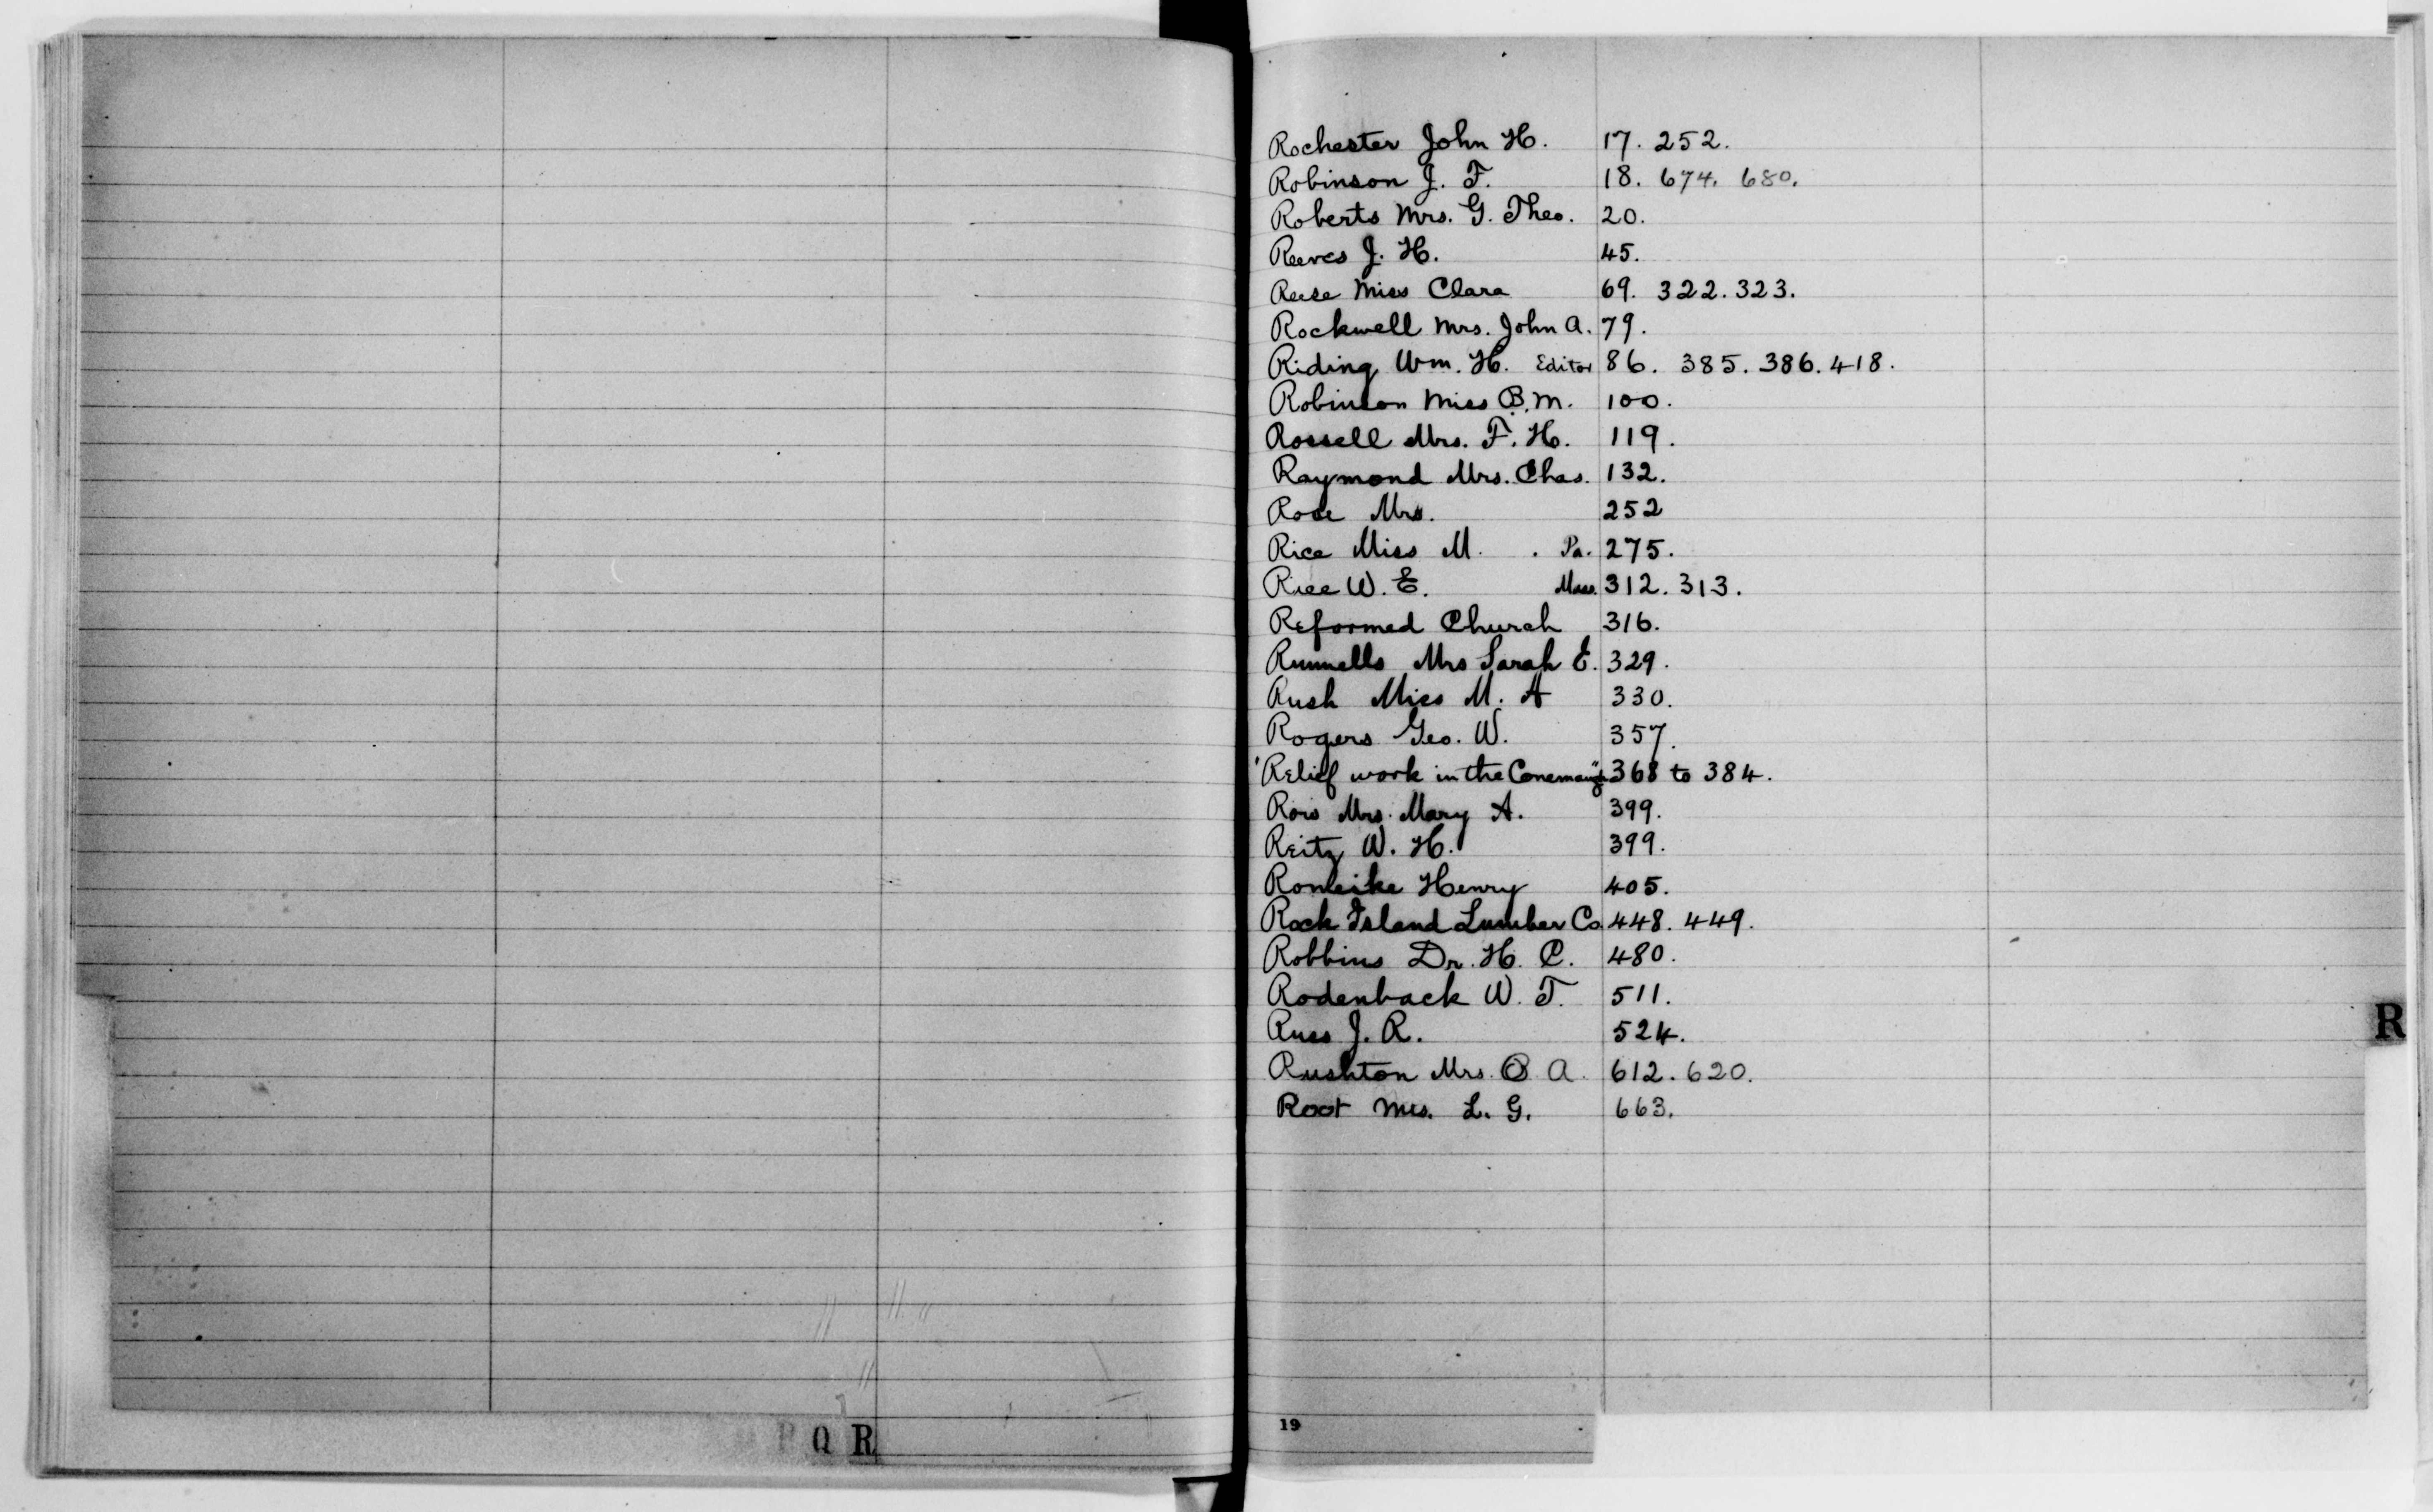 Rochester John H. 17. 252.
Robinson J. F. 18. 674. 680.
Roberts Mrs. G. Theo. 20.
Reeves J. H. 45.
Reese Miss Clara 69. 322. 323.
Rockwell Mrs. John A. 79.
Riding Wm. H. Editor 86. 385. 386. 418.
Robinson Miss B. M. 100.
Rossell Mrs. F. H. 119.
Raymond Mrs. Chas. 132.
Rose Mrs. 252
Rice Miss M. Pa. 275.
Rice W. E. Mass. 312. 313.
Reformed Church 316.
Runnells Mrs Sarah E. 329.
Rush Miss M. A 330.
Rogers Geo. W. 357.
"Relief work in the Conemaugh" 368 to 384.
Mrs. Mary A. 399.
Reitz W. H. 399.
Romeike Henry 405.
Rock Island Lumber Co. 448. 449.
Robbins Dr. H. C. 480.
Rodenback W. T. 511.
Russ J. R. 524.
Rushton Mrs. B A. 612. 620.
Root Mrs. L. G. 663.
R
P Q R
19